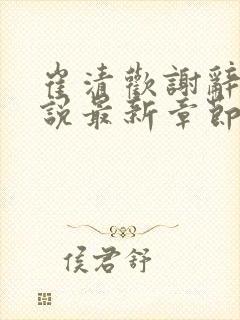 崔清歡謝辭
說最新章節
侯君舒